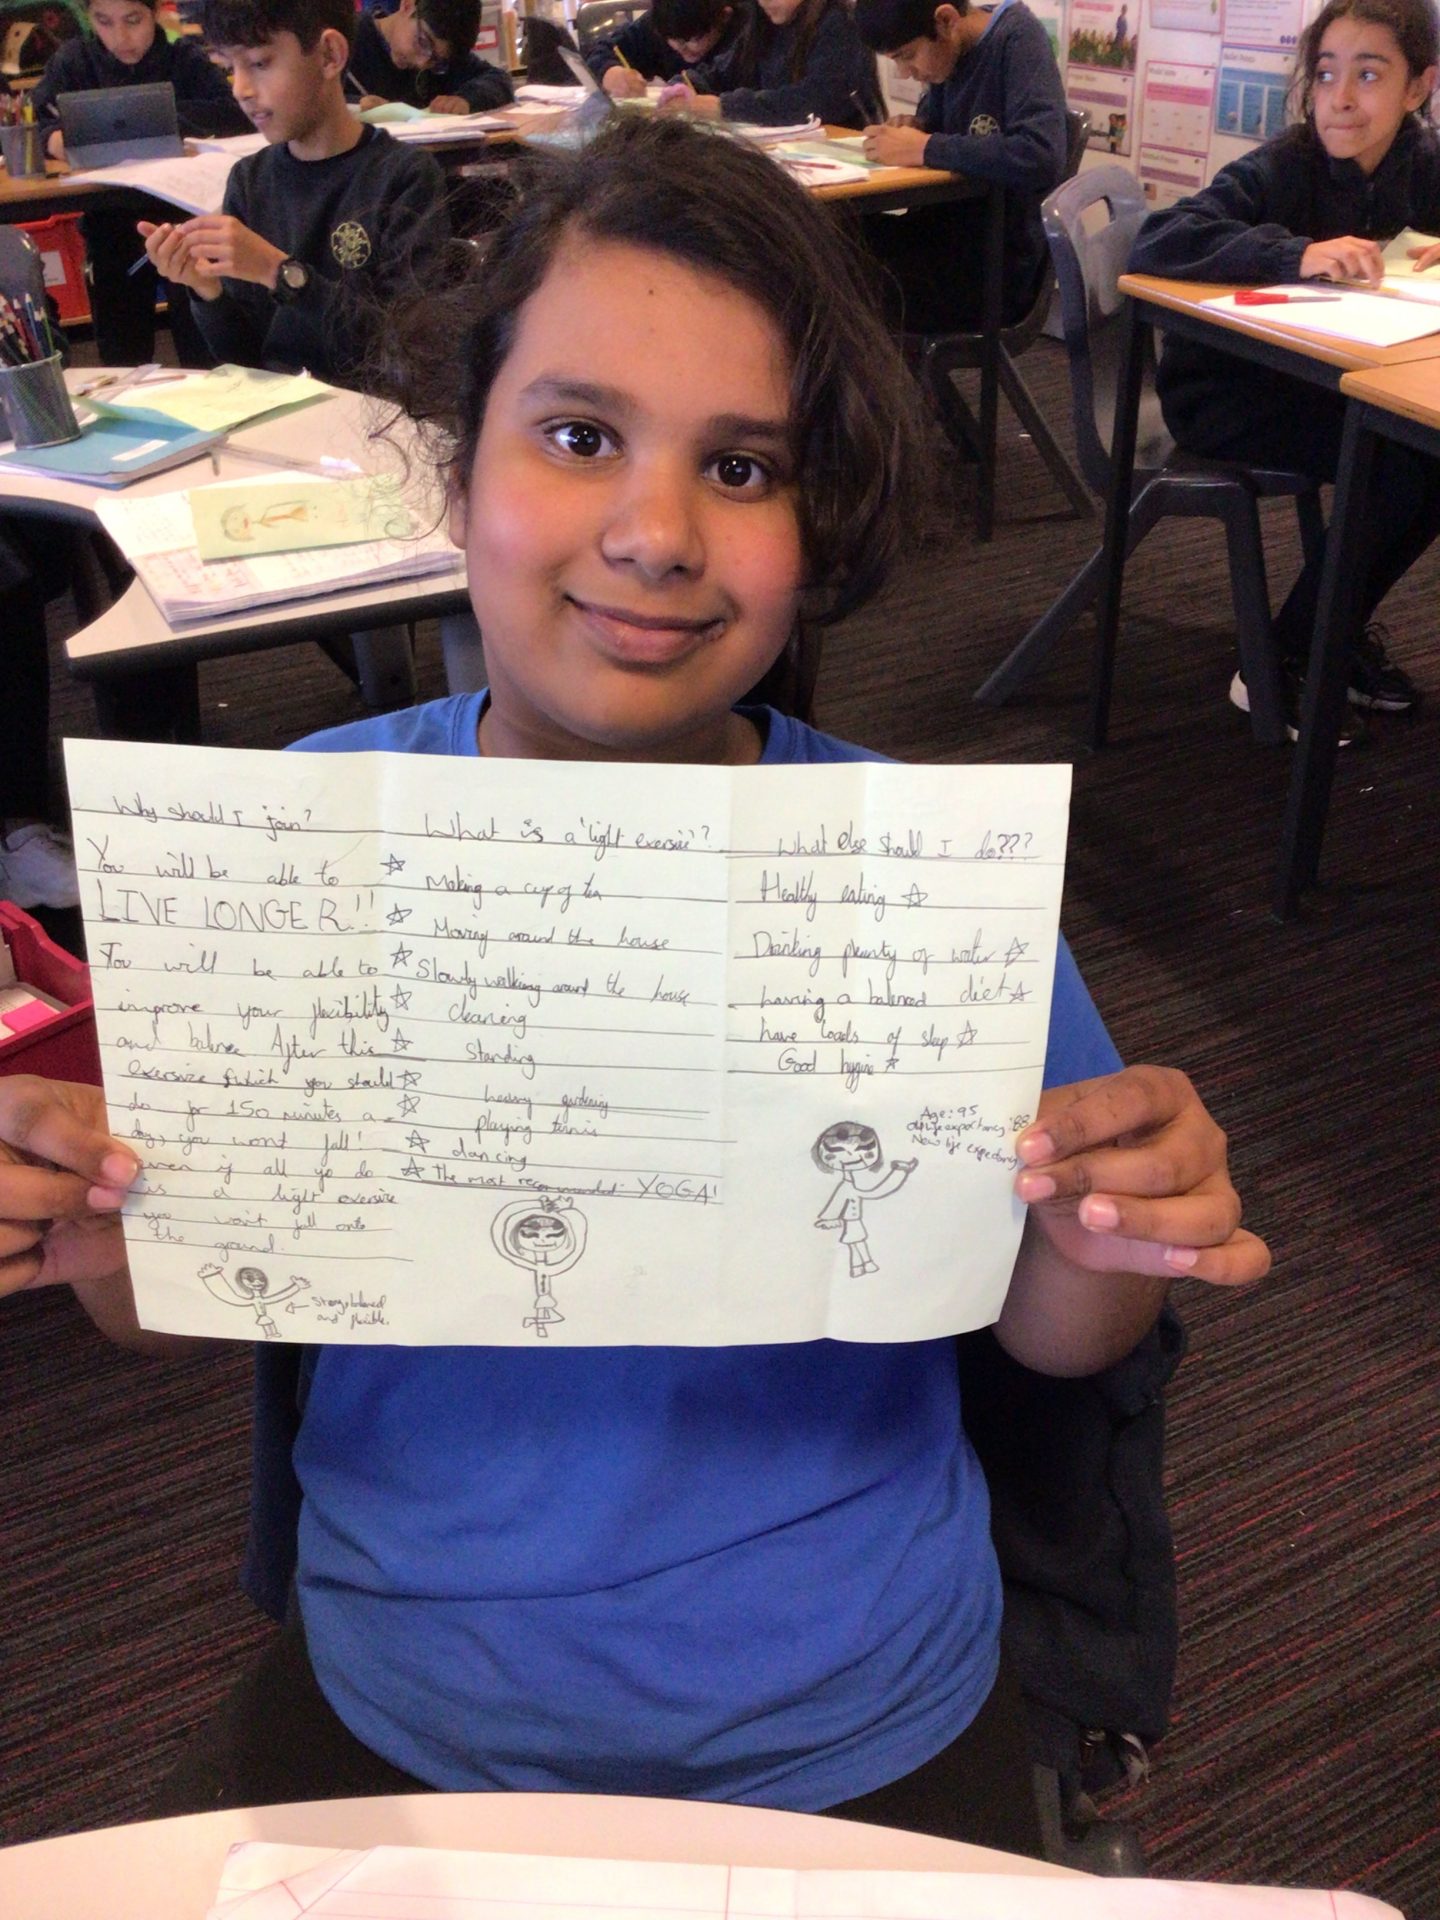 Why should I join?
You will be able to
LIVE LONGER!!
You will be able to
improve your flexibility
and balence After this
exersize (which you should
do for 150 minutes a
day, you wont fall!
even if all yo do
is a light exersize
you won't fall onto
the ground.
Strong, balenced
and flexible.
What is a 'light exersize'?
Making a cup of tea
Moving around the house
Slowly walking around the house
Cleaning
Standing
heavy gardening
playing tennis
dancing
The most recommended - YOGA!
What else should I do???
Healthy eating
Drinking plenty of water
having a balenced diet
have loads of sleep
Good hygine
Age: 95
life expectancy: 88
New life expectancy